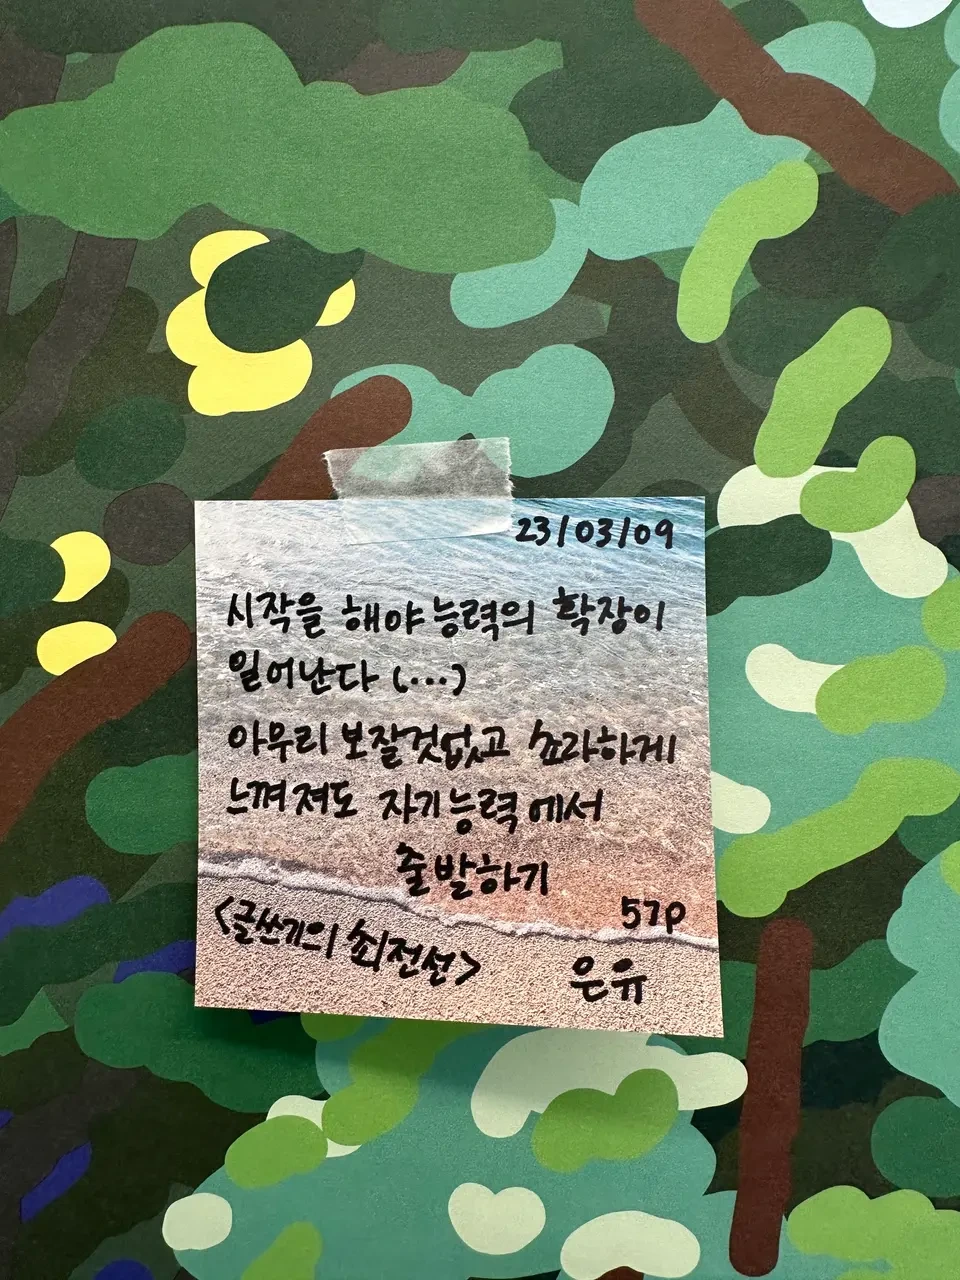 23/03/09
시작을 해야 능력의 확장이
일어난다 (...)
아무리 보잘것없고 초라하게
느껴져도 자기능력에서
출발하기
57p
<글쓰기의 최전선>
은유